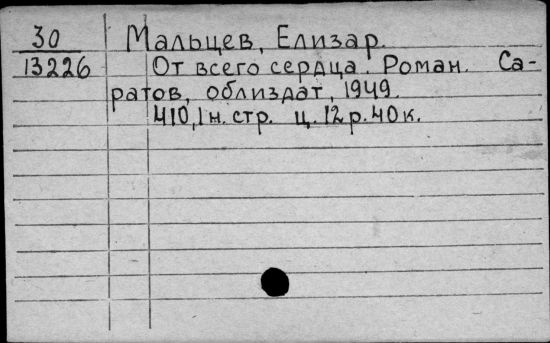 30 Мальцев, Елизар.
13226 От всего сердца. Роман. Са-
ратов, облиздат, 1949.
410,1 н. стр. ц. 12 р. 40 к.